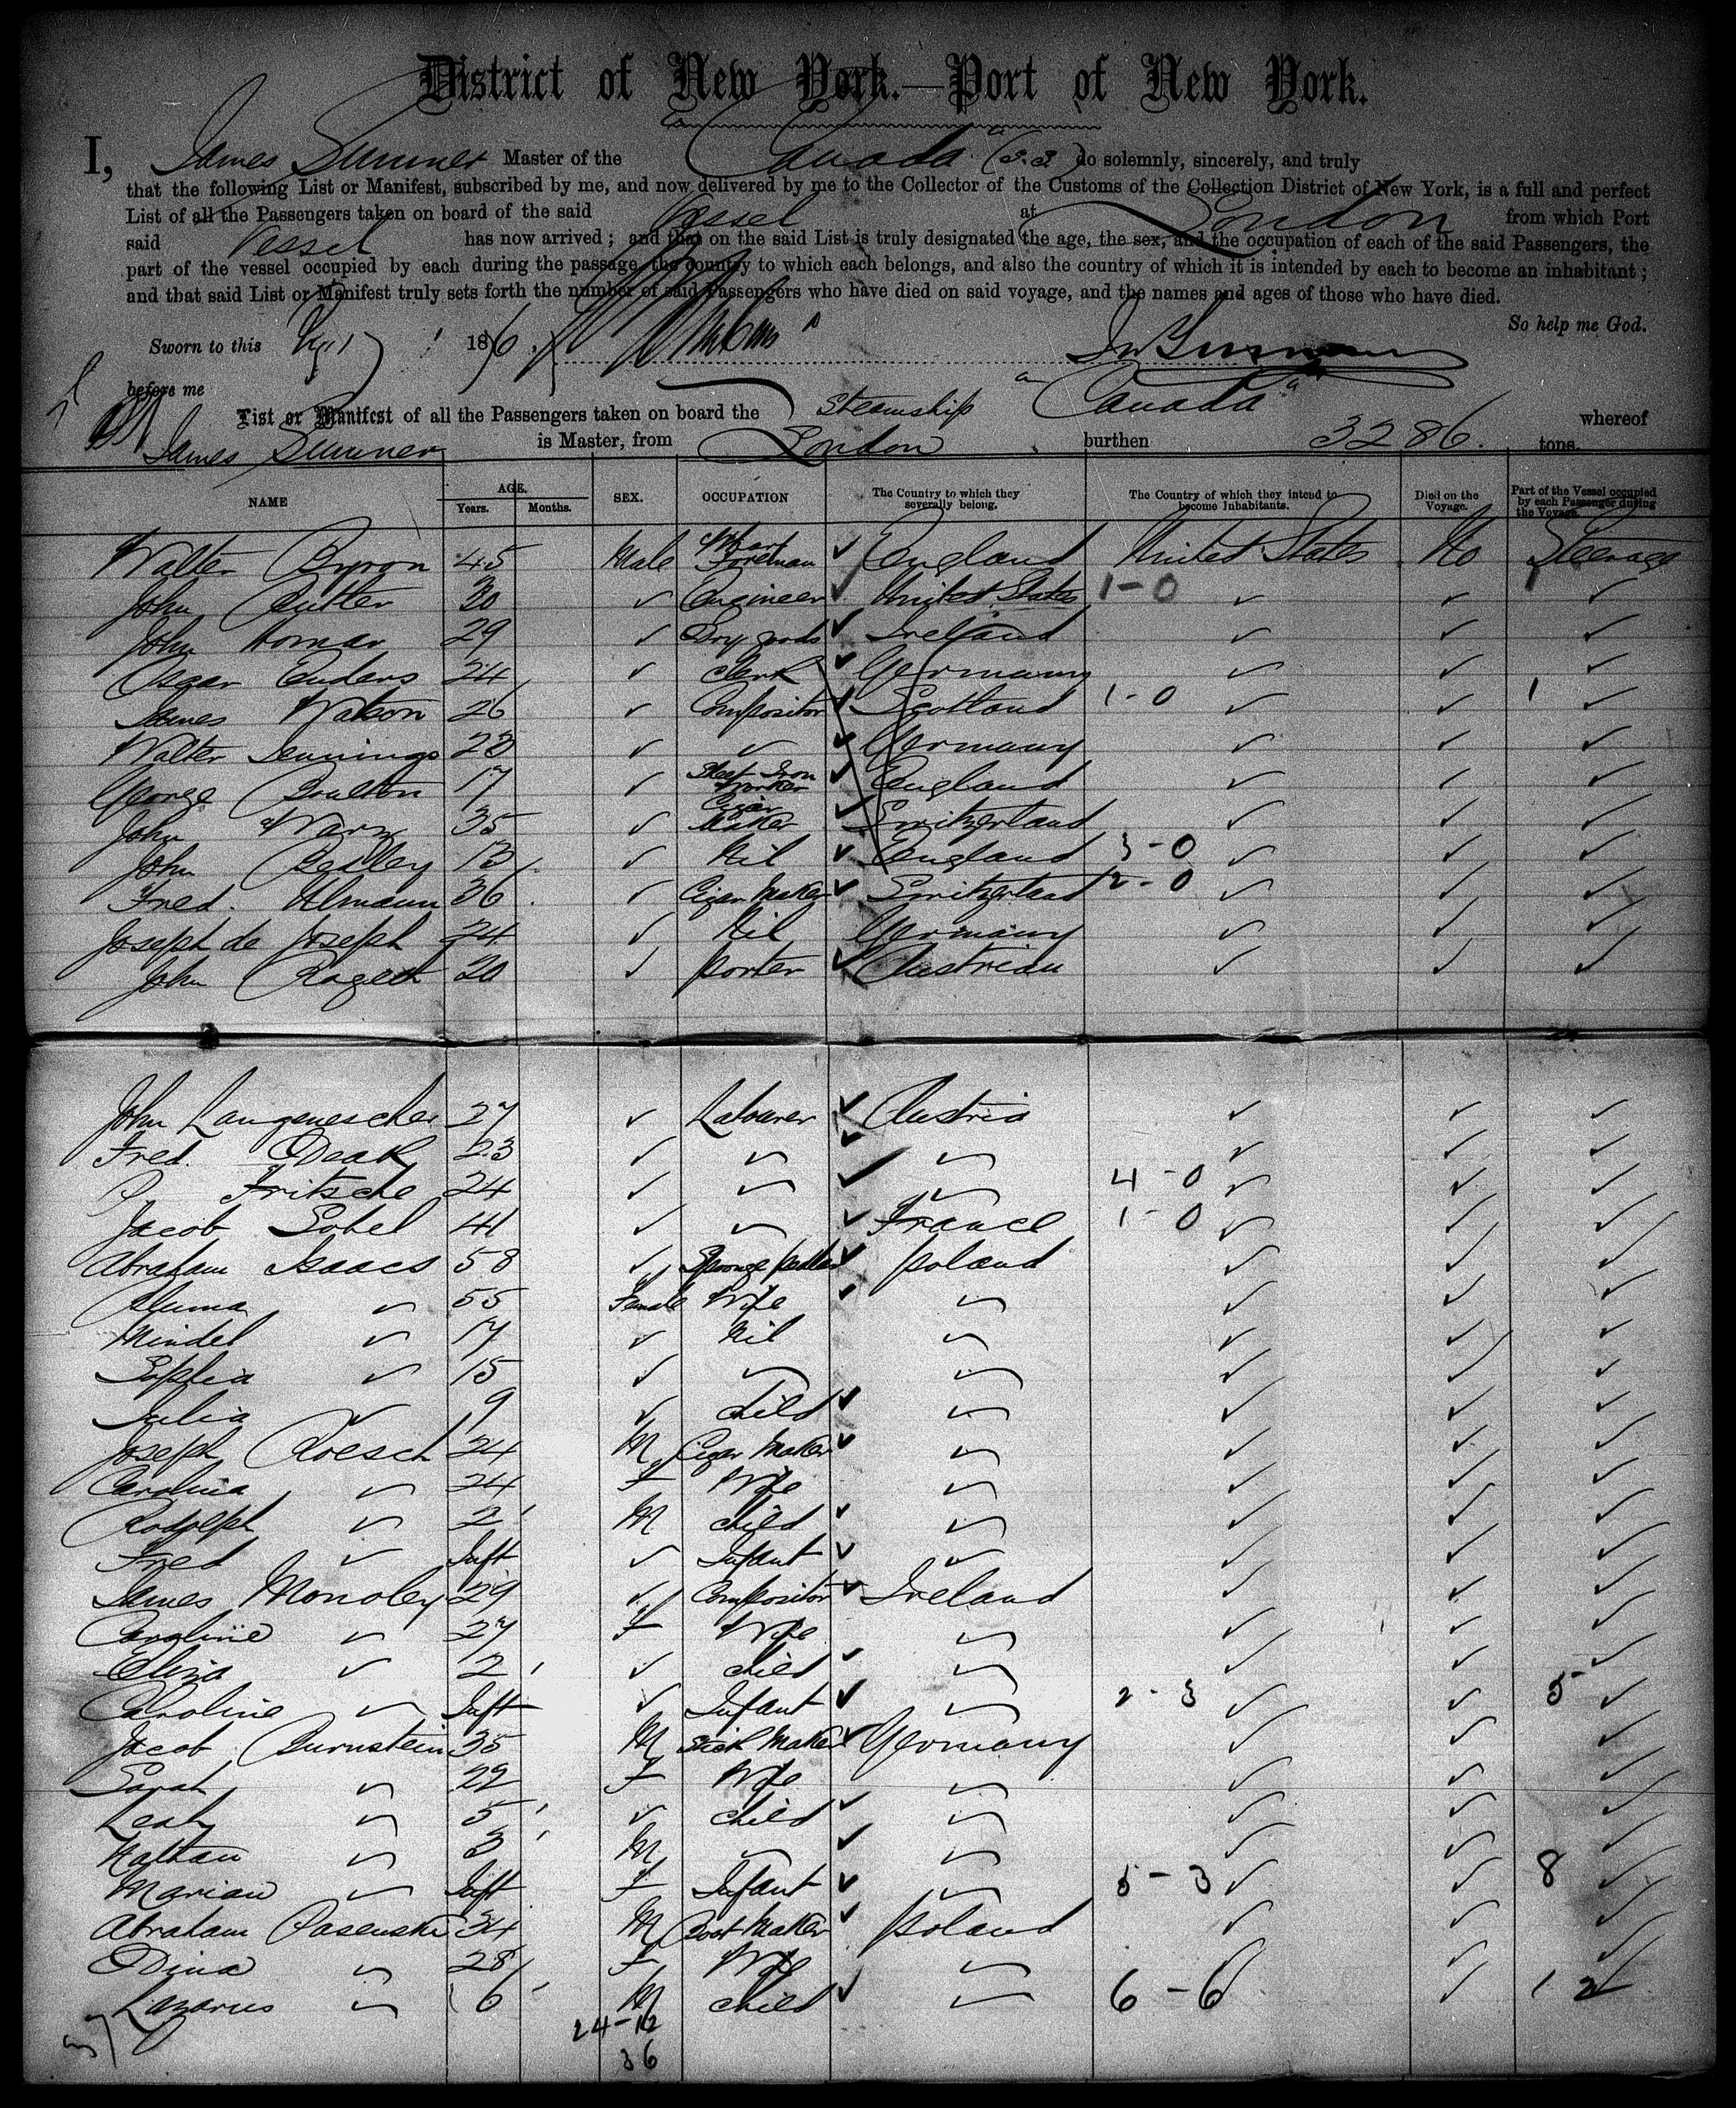 District of New York.—Port of New York.
I, James Sumner Master of the "Canada" (S.S) do solemnly, sincerely, and truly
that the following List or Manifest, subscribed by me, and now delivered by me to the Collector of the Customs of the Collection District of New York, is a full and perfect
List of all the Passengers taken on board of the said Vessel at London from which Port
said Vessel has now arrived; and that on the said List is truly designated the age, the sex, and the occupation of each of the said Passengers, the
part of the vessel occupied by each during the passage, the country to which each belongs, and also the country of which it is intended by each to become an inhabitant;
and that said List or Manifest truly sets forth the number of said Passengers who have died on said voyage, and the names and ages of those who have died.
So help me God.
Sworn to this 186
before me
List or Manifest of all the Passengers taken on board the Steamship "Canada" whereof
James Sumner is Master, from London burthen 3286. tons.
NAME AGE. Years. Months. SEX. OCCUPATION The Country to which they severally belong. The Country of which they intend to become Inhabitants. Died on the Voyage. Part of the Vessel occupied by each Passenger during the Voyage.
Walter Byron 45 Male Foreman ✓ England United States No Steerage
John Cutler 30 ✓ Engineer ✓ United States 1-0 ✓ ✓ ✓
John Homan 29 ✓ Dry goods ✓ Ireland ✓ ✓ ✓
Oscar Enders 24 ✓ Clerk ✓ Germany ✓ ✓ ✓
James Watson 26 ✓ Compositor ✓ Scotland 1-0 ✓ ✓ 1 ✓
Walter Jennings 23 ✓ ✓ ✓ Germany ✓ ✓ ✓
George Boulton 17 ✓ Sheet Iron Worker ✓ England ✓ ✓ ✓
John Warz 35 ✓ Cigar Maker ✓ Switzerland ✓ ✓ ✓
John Bedley 13 ✓ Nil ✓ England 3-0 ✓ ✓ ✓
Fred. Ulmann 36 ✓ Cigar Maker ✓ Switzerland 2-0 ✓ ✓ ✓
Joseph de Joseph 24 ✓ Nil Germany ✓ ✓ ✓
John Rogett 20 ✓ Porter ✓ Austrian ✓ ✓ ✓
John Langenescher 27 ✓ Labourer ✓ Austria ✓ ✓ ✓
Fred. Deak 23 ✓ ✓ ✓ ✓ ✓ ✓ ✓
Fritsche 24 ✓ ✓ ✓ ✓ 4-0 ✓ ✓ ✓
Jacob Sobel 41 ✓ ✓ ✓ France 1-0 ✓ ✓ ✓
Abraham Isaacs 58 ✓ Sponge pedlar ✓ Poland ✓ ✓ ✓
Bluma ✓ 55 Female Wife ✓ ✓ ✓ ✓ ✓
Mindel ✓ 17 ✓ Nil ✓ ✓ ✓ ✓
Sophia ✓ 15 ✓ ✓ ✓ ✓ ✓ ✓
Julia ✓ 9 ✓ Child ✓ ✓ ✓ ✓ ✓
Joseph Roesch 24 M Cigar Maker ✓ ✓ ✓ ✓ ✓
Carolina ✓ 24 F Wife ✓ ✓ ✓ ✓
Rodolph ✓ 2 M child ✓ ✓ ✓ ✓ ✓
Fred ✓ Inft ✓ Infant ✓ ✓ ✓ ✓ ✓
James Monoley 29 ✓ Compositor ✓ Ireland ✓ ✓ ✓
Caroline ✓ 27 F Wife ✓ ✓ ✓ ✓
Eliza ✓ 2 ✓ child ✓ ✓ ✓ ✓ ✓
Caroline ✓ Inft ✓ Infant ✓ ✓ 2-3 ✓ ✓ 5 ✓
Jacob Burnstein 35 M Stick Maker ✓ Germany ✓ ✓ ✓
Sarah ✓ 22 F Wife ✓ ✓ ✓ ✓
Leah ✓ 5 ✓ child ✓ ✓ ✓ ✓ ✓
Nathan ✓ 3 M ✓ ✓ ✓ ✓ ✓ ✓
Marian ✓ Inft F Infant ✓ ✓ 5-3 ✓ ✓ 8 ✓
Abraham Pasenski 34 M Boot Maker ✓ Poland ✓ ✓ ✓
Dina ✓ 28 F Wife ✓ ✓ ✓ ✓
Lazarus ✓ 6 M child ✓ ✓ 6-6 ✓ 12
24-12
36
37